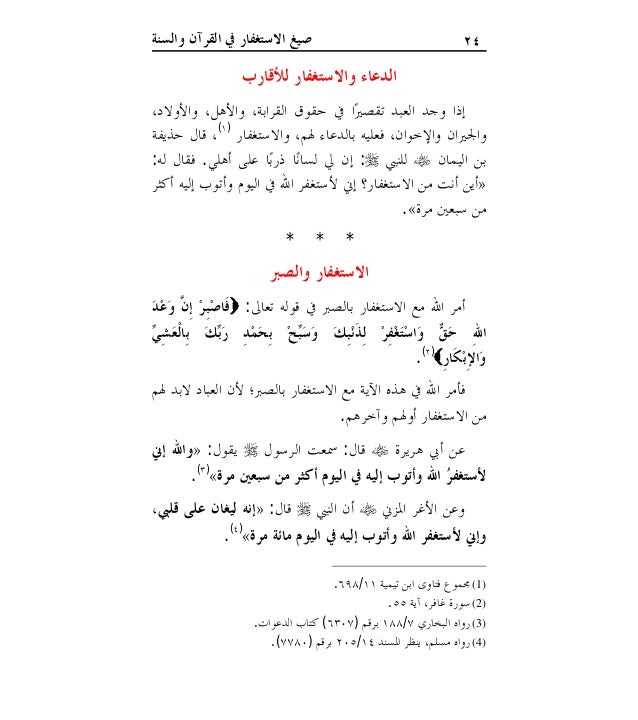 ٢٤ صيغ الاستغفار في القرآن والسنة
الدعاء والاستغفار للأقارب
إذا وجد العبد تقصيرًا في حقوق القرابة، والأهل، والأولاد،
والجيران والإخوان، فعليه بالدعاء لهم، والاستغفار (١)، قال حذيفة
بن اليمان ﷺ للنبي ﷺ: إن لي لسانًا ذربًا على أهلي. فقال له:
«أين أنت من الاستغفار؟ إني لأستغفر الله في اليوم وأتوب إليه أكثر
من سبعين مرة».
* * *
الاستغفار والصبر
أمر الله مع الاستغفار بالصبر في قوله تعالى: ﴿فَاصْبِرْ إِنَّ وَعْدَ
اللهِ حَقٌّ وَاسْتَغْفِرْ لِذَنْبِكَ وَسَبِّحْ بِحَمْدِ رَبِّكَ بِالْعَشِيِّ
وَالإِبْكَارِ﴾(٢).
فأمر الله في هذه الآية مع الاستغفار بالصبر؛ لأن العباد لابد لهم
من الاستغفار أولهم وآخرهم.
عن أبي هريرة ﷺ قال: سمعت الرسول ﷺ يقول: «والله إني
لأستغفرُ الله وأتوب إليه في اليوم أكثر من سبعين مرة»(٣).
وعن الأغر المزني ﷺ أن النبي ﷺ قال: «إنه ليغان على قلبي،
وإني لأستغفر الله وأتوب إليه في اليوم مائة مرة»(٤).
(1) مجموع فتاوى ابن تيمية ٦٩٨/١١.
(2) سورة غافر، آية ٥٥.
(3) رواه البخاري ١٨٨/٧ برقم (٦٣٠٧) كتاب الدعوات.
(4) رواه مسلم، ينظر المسند ٢٠٥/١٤ برقم (٧٧٨٠).